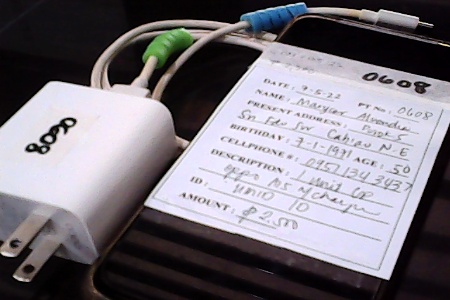 0608
8090
DATE: 7-5-22 PT No: 0608
NAME: Marycor
PRESENT ADDRESS: Purok 5
Sn Cabiao N.E
BIRTHDAY: 7-1-1971 AGE: 50
CELLPHONE #: 0957 134 3437
DESCRIPTION: 1 Unit CP
oppo A5 w/ charger
ID: UMID ID
AMOUNT: ₱ 2,500